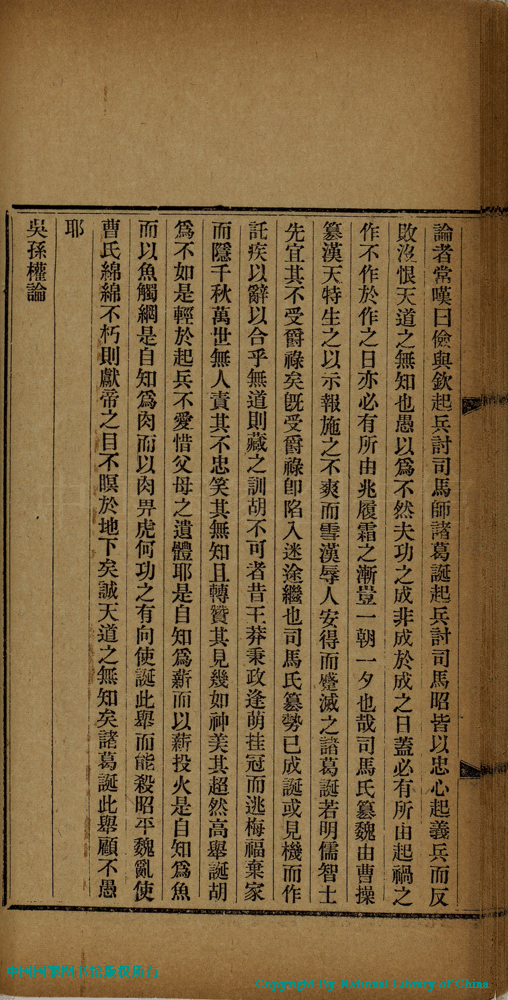 論者常嘆曰儉與欽起兵討司馬師諸葛誕起兵討司馬昭皆以忠心起義兵而反
敗沒恨天道之無知也愚以爲不然夫功之成非成於成之日蓋必有所由起禍之
作不作於作之日亦必有所由兆履霜之漸豈一朝一夕也哉司馬氏篡魏由曹操
篡漢天特生之以示報施之不爽而雪漢辱人安得而殲滅之諸葛誕若明儒智士
先宜其不受爵祿矣既受爵祿卽陷入迷途繼也司馬氏篡勢已成誕或見機而作
託疾以辭以合乎無道則藏之訓胡不可者昔王莽秉政逄萌挂冠而逃梅福棄家
而隱千秋萬世無人責其不忠笑其無知且轉贊其見幾如神美其超然高舉誕胡
爲不如是輕於起兵不愛惜父母之遺體耶是自知爲薪而以薪投火是自知爲魚
而以魚觸網是自知爲肉而以肉畀虎何功之有向使誕此舉而能殺昭平魏亂使
曹氏綿綿不朽則獻帝之目不瞑於地下矣誠天道之無知矣諸葛誕此舉顧不愚
耶
吳孫權論
中国国家图书馆版权所有
Copyright By National Library of China